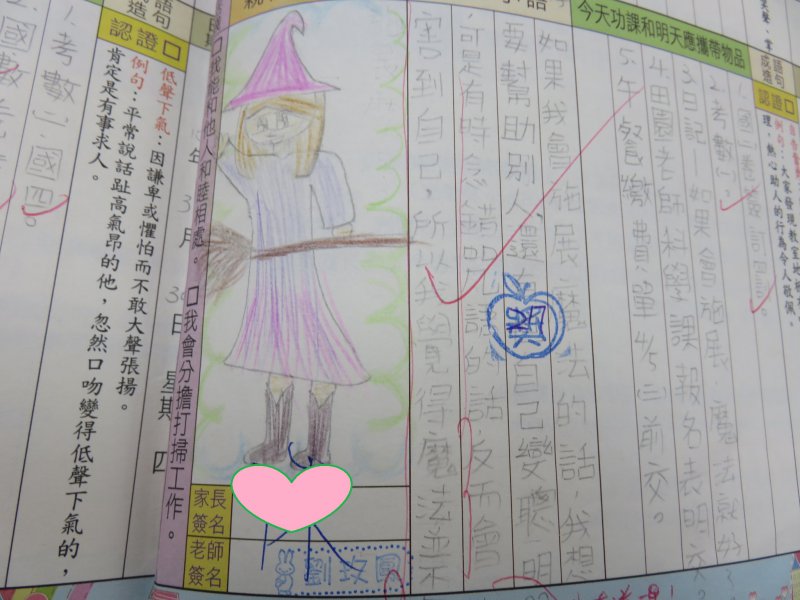 成語
造句
認證□
理，熱心助人的行為令人敬佩。
今天功課和明天應攜帶物品
2.考數(一)。
3.日記-如果會施展魔法就好
4.田園老師科學課報名表明交
5.午餐繳費單4/5(三)前交。
如果我會施展魔法的話，我想
要幫助別人還有 自己變聰明
可是有時念錯咒語的話反而會
害到自己，所以我覺得魔法並不
家長
簽名
老師
簽名
劉玫
□我能和他人和睦相處。 □我會分擔打掃工作。
年 3月 30日 星期四
語句
造
認證□
低聲下氣：因謙卑或懼怕而不敢大聲張揚。
例句：平常說話趾高氣昂的他，忽然口吻變得低聲下氣的，
肯定是有事求人。
1.考數(一)、國(四)。